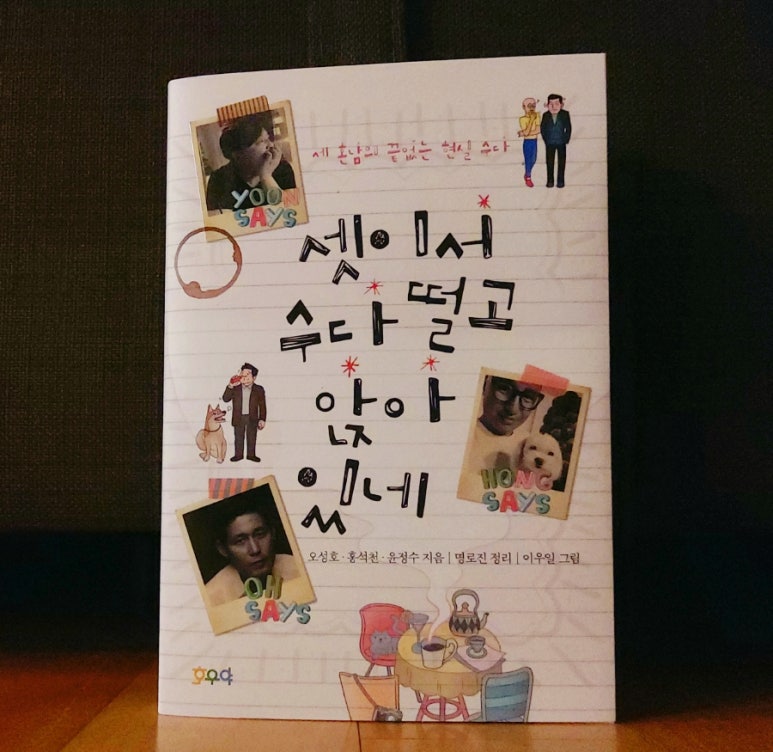 세 혼남의 끝없는 현실 수다
YOON
SAYS
셋이서
수다 떨고
앉아
있네
HONG
SAYS
OH
SAYS
오성호·홍석천·윤정수 지음 | 명로진 정리 | 이우일 그림
호우야